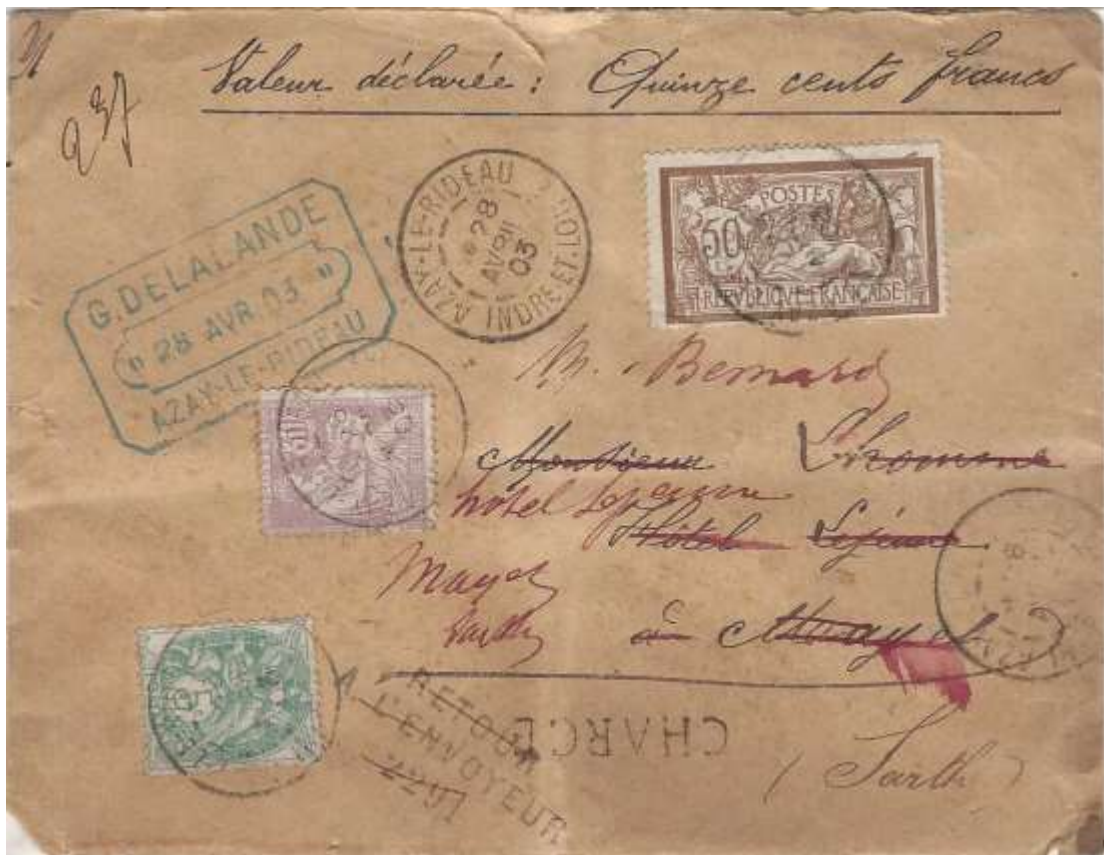 Valeur déclarée : Quinze cents francs
237
G. DELALANDE
" 28 AVR. 03 "
AZAY-LE-RIDEAU
AZAY-LE-RIDEAU
28
AVRIL
03
INDRE-ET-LOIRE
POSTES
50
REPUBLIQUE FRANÇAISE
M. Bernard
Monsieur Lhomme
hôtel Lejeune
Hôtel Lejeune
Mayet
Sarthe
à Mayet
RETOUR
A L'ENVOYEUR
2297
CHARGÉ
(Sarthe)